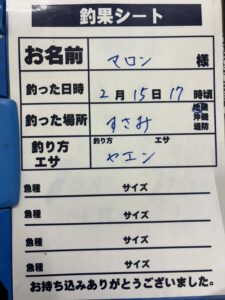 釣果シート
お名前 マロン 様
釣った日時 2月15日17時頃
釣った場所 すさみ 地磯 沖磯 堤防
釣り方 エサ 釣り方 エサ ヤエン
魚種 サイズ
魚種 サイズ
魚種 サイズ
魚種 サイズ
お持ち込みありがとうございました。